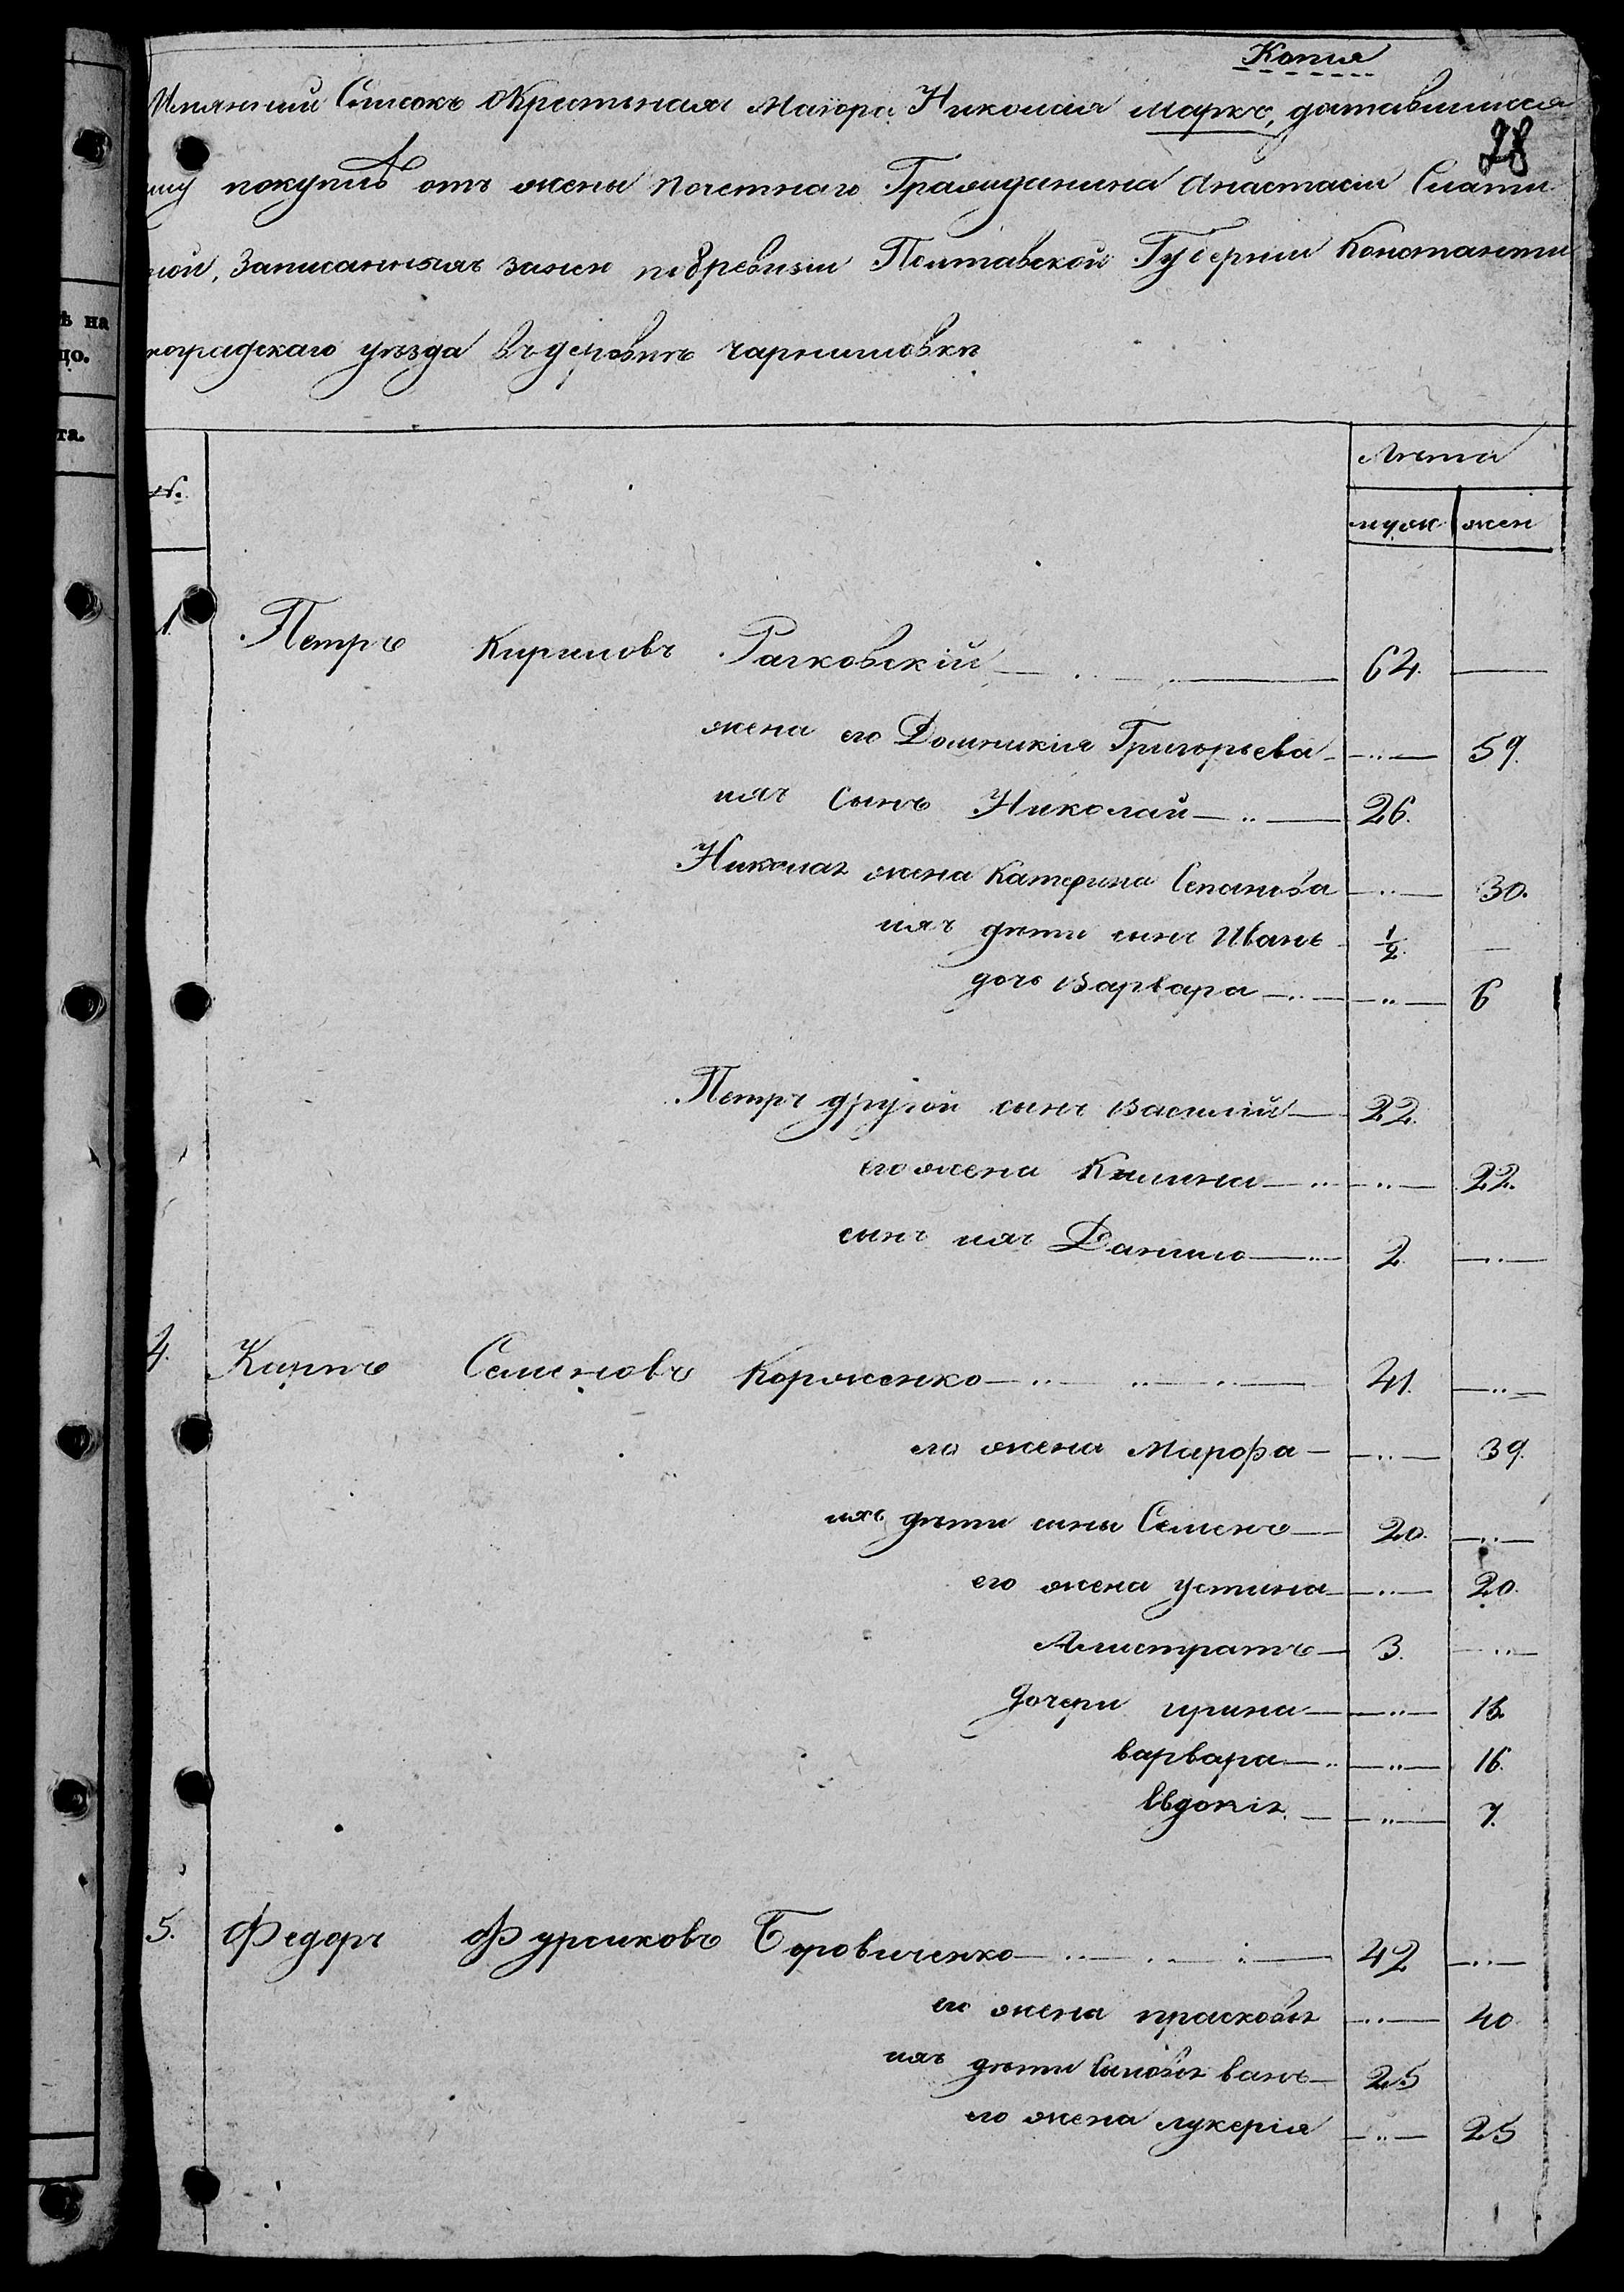 Копия
Имянный Списокъ окрестьнахъ Маіора Николая Маркъ, доставшихся
28
ему покупкѣ отъ жены почетнаго Гражданина Анастасіи Слати
ной, записанныхъ занею по 8 ревизіи Полтавской Губерніи Константи
ноградскаго уѣзда въ деревнѣ чернышовкѣ
ѣ на
цо.
та.
№.
Лѣта
муж жен
1. Петръ Кириловъ Рачковскій 64.
жена его Домникія Григорьева 59.
ихъ Сынъ Николай 26.
Николая жена Катерина Степанова 30.
ихъ дѣти сынъ Иванъ 1/2.
дочь Варвара 6
Петра другой сынъ Василий 22.
его жена Калина 22.
сынъ ихъ Данило 2.
4. Карпъ Семеновъ Корженко 41.
его жена Марфа 39.
ихъ дѣти сины Семенъ 20.
его жена устина 20.
Алистратъ 3.
дочери ирина 18.
варвара 16.
Евдокія 7.
5. Федоръ Фурсиковъ Боровиченко 42
его жена прасковья 40
ихъ дѣти Сыновья ванъ 25
его жена лукерія 25